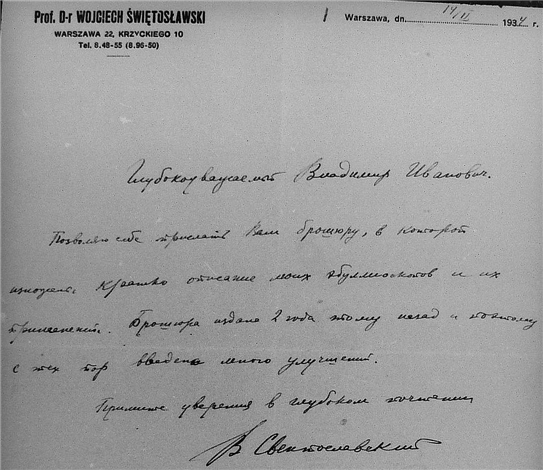 Prof. D-r WOJCIECH ŚWIĘTOSŁAWSKI
WARSZAWA 22, KRZYCKIEGO 10
Tel. 8.48-55 (8.96-50)
Warszawa, dn. 14/II 1934 r.
Глубокоуважаемый Владимир Иванович.
Позволяю себе прислать Вам брошюру, в которой
изложено кратко описание моих эбуллиоскопов и их
применений. Брошюра издана 2 года тому назад и поэтому
с тех пор введено много улучшений.
Примите уверения в глубоком почтении
В Свентославский